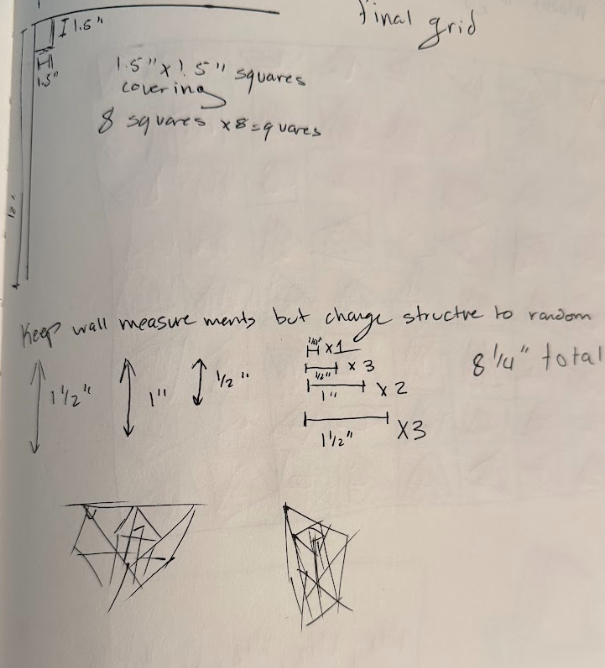 final grid
1.5"
1.5"
1.5" x 1.5" squares
covering
8 squares x 8 squares
Keep wall measurements but change structre to random
1 1/2"
1"
1/2"
1/4" x 1
1/2" x 3
1" x 2
1 1/2" x3
8 1/4" total